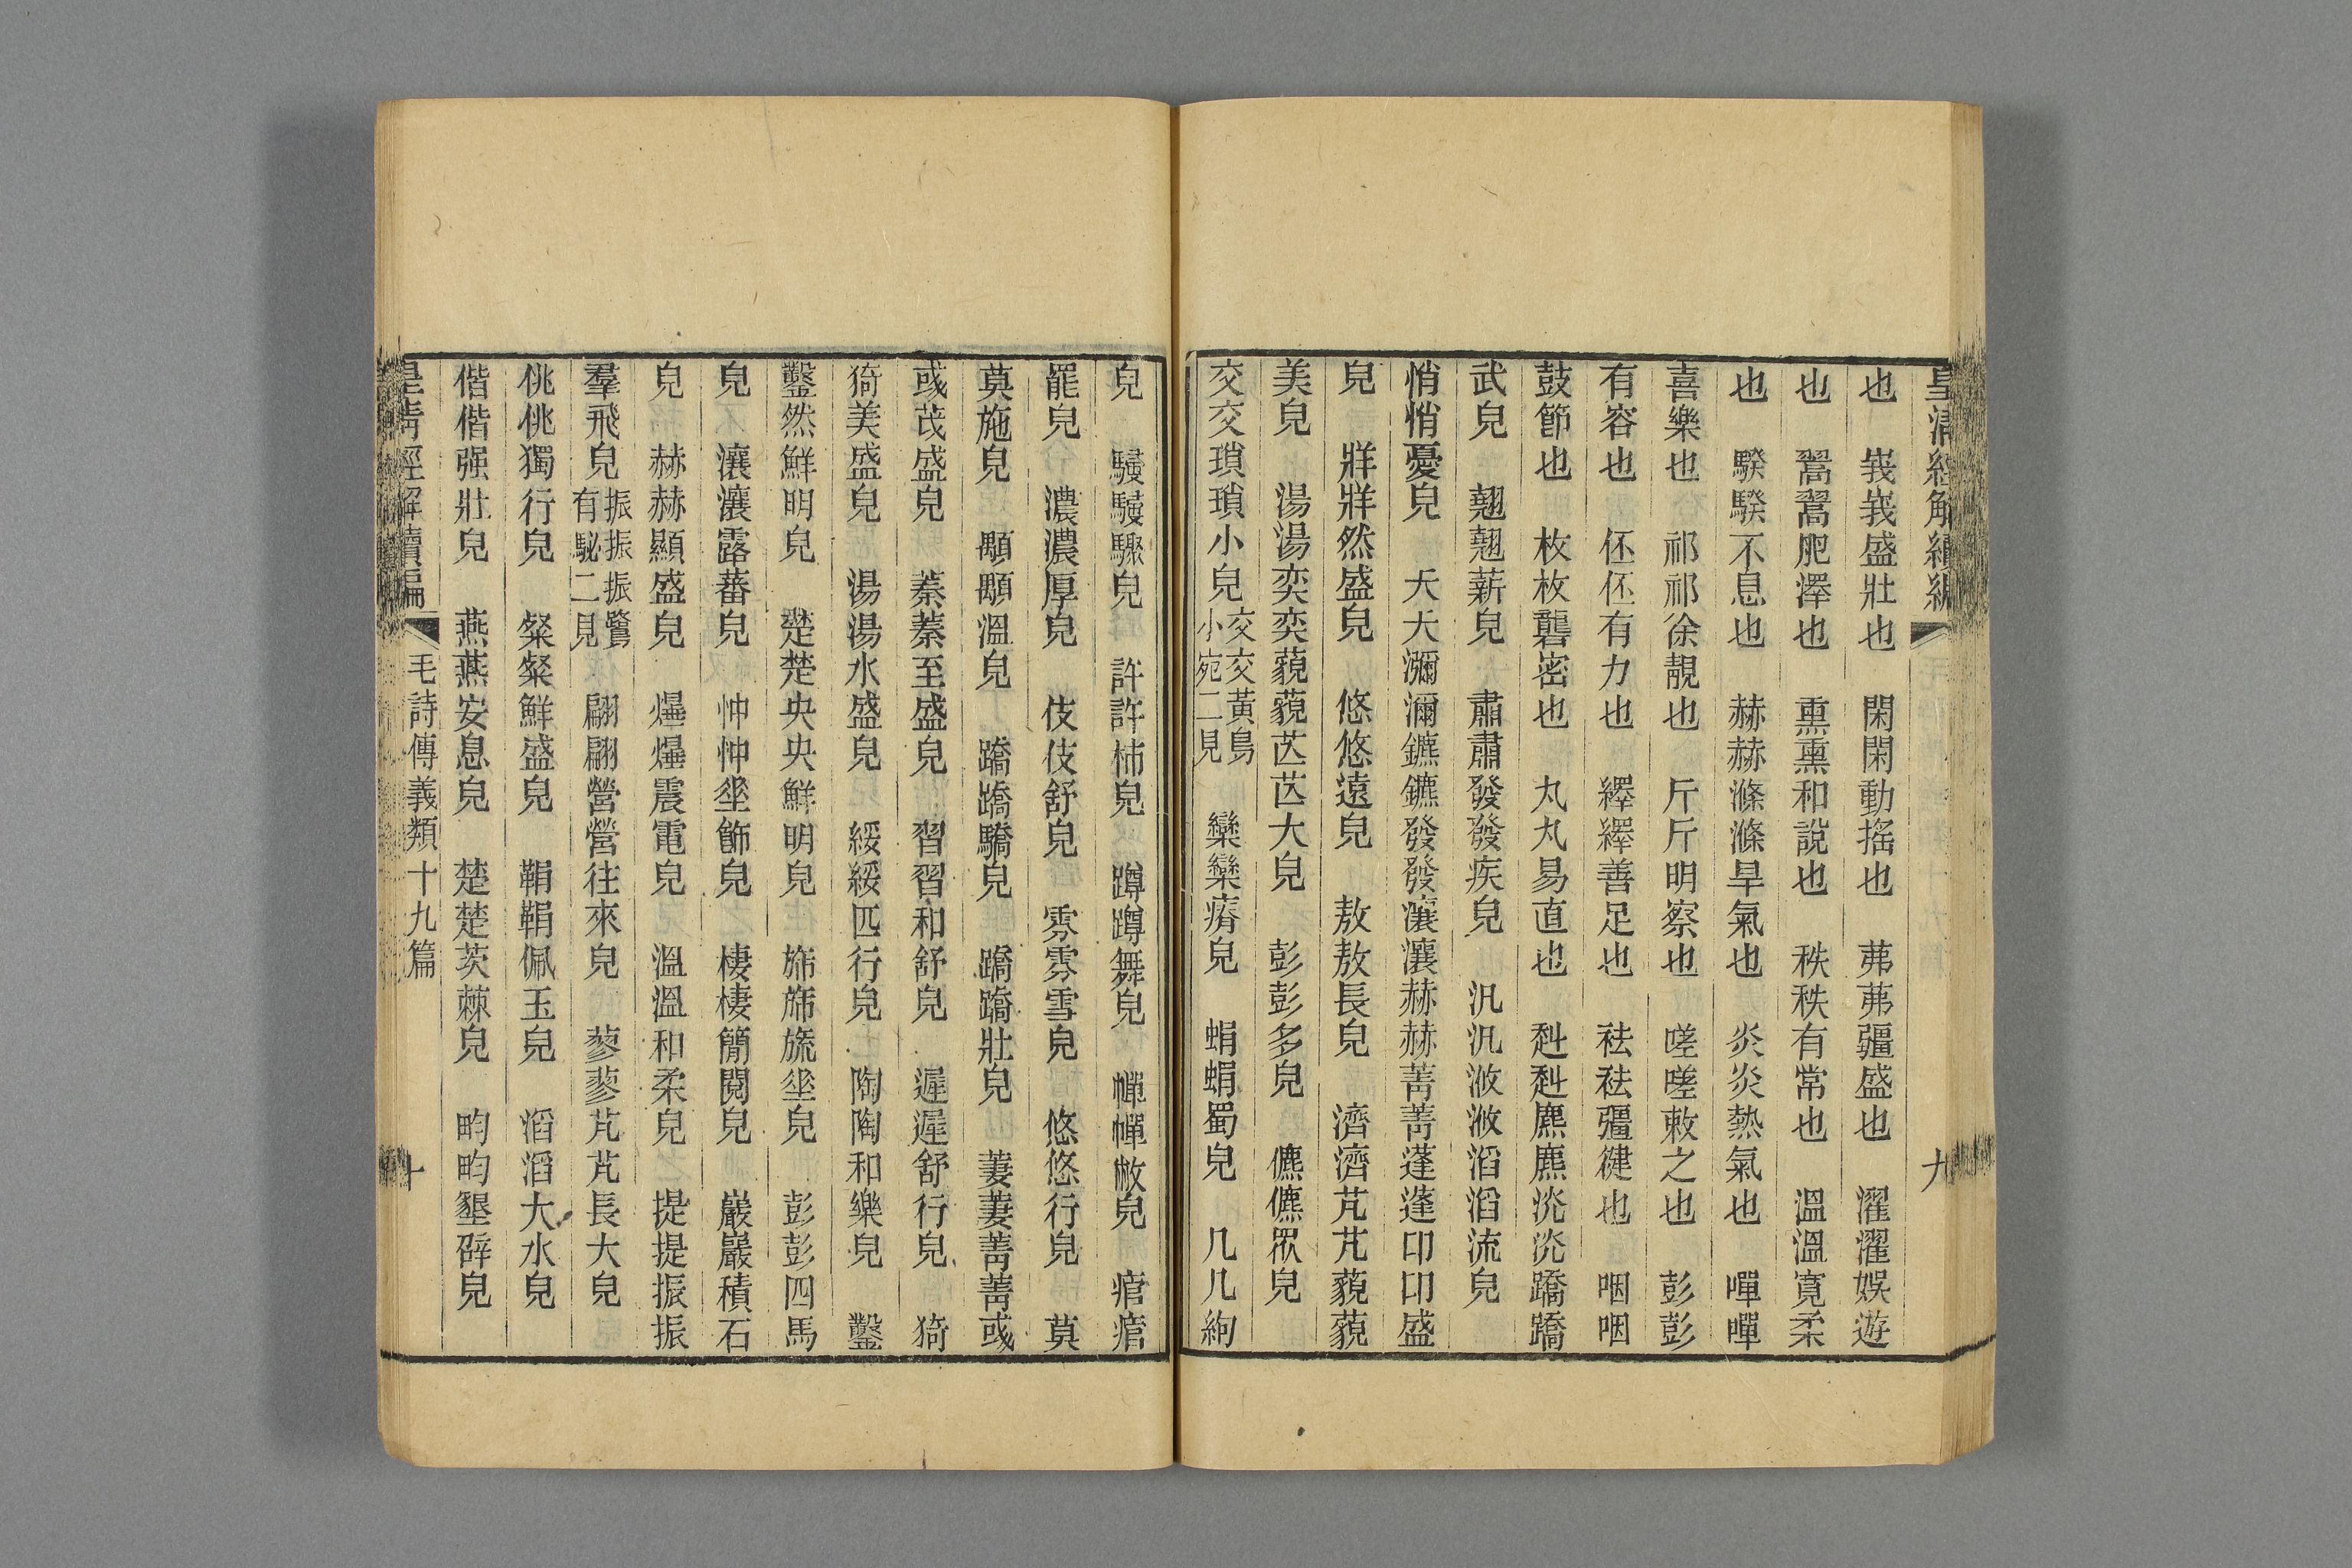 皇清經解續編 九
也 峩峩盛壯也 閑閑動搖也 茀茀彊盛也 濯濯娛遊
也 翯翯肥澤也 熏熏和說也 秩秩有常也 溫溫寬柔
也 騤騤不息也 赫赫滌滌旱氣也 炎炎熱氣也 嘽嘽
喜樂也 祁祁徐靚也 斤斤明察也 嗟嗟敕之也 彭彭
有容也 伾伾有力也 繹繹善足也 祛祛彊健也 咽咽
鼓節也 枚枚礱密也 丸丸易直也 赳赳麃麃洸洸蹻蹻
武皃 翹翹薪皃 肅肅發發疾皃 汎汎浟浟滔滔流皃
悄悄憂皃 夭夭瀰瀰鑣鑣發發瀼瀼赫赫菁菁蓬蓬卬卬盛
皃 牂牂然盛皃 悠悠遠皃 敖敖長皃 濟濟芃芃藐藐
美皃 湯湯奕奕藐藐芤芤大皃 彭彭多皃 儦儦眾皃
交交瑣瑣小皃 交交黃鳥小宛二見 欒欒瘠皃 蜎蜎蜀皃 几几絇
皃 駸駸驟皃 許許柿皃 蹲蹲舞皃 幝幝敝皃 痯痯
罷皃 濃濃厚皃 伎伎舒皃 雰雰雪皃 悠悠行皃 莫
莫施皃 顒顒溫皃 蹻蹻驕皃 蹻蹻壯皃 萋萋菁菁彧
彧茂盛皃 蓁蓁至盛皃 習習和舒皃 遲遲舒行皃 猗
猗美盛皃 湯湯水盛皃 綏綏匹行皃 陶陶和樂皃 鑿
鑿然鮮明皃 楚楚央央鮮明皃 旆旆旒垂皃 彭彭四馬
皃 瀼瀼露蕃皃 忡忡垂飾皃 棲棲簡閱皃 巖巖積石
皃 赫赫顯盛皃 爗爗震電皃 溫溫和柔皃 提提振振
羣飛皃 振振振鷺有駜二見 翩翩營營往來皃 蓼蓼芃芃長大皃
佻佻獨行皃 粲粲鮮盛皃 鞙鞙佩玉皃 滔滔大水皃
偕偕强壯皃 燕燕安息皃 楚楚茨棘皃 畇畇墾辟皃
皇淸經解續編 毛詩傳義類十九篇 十